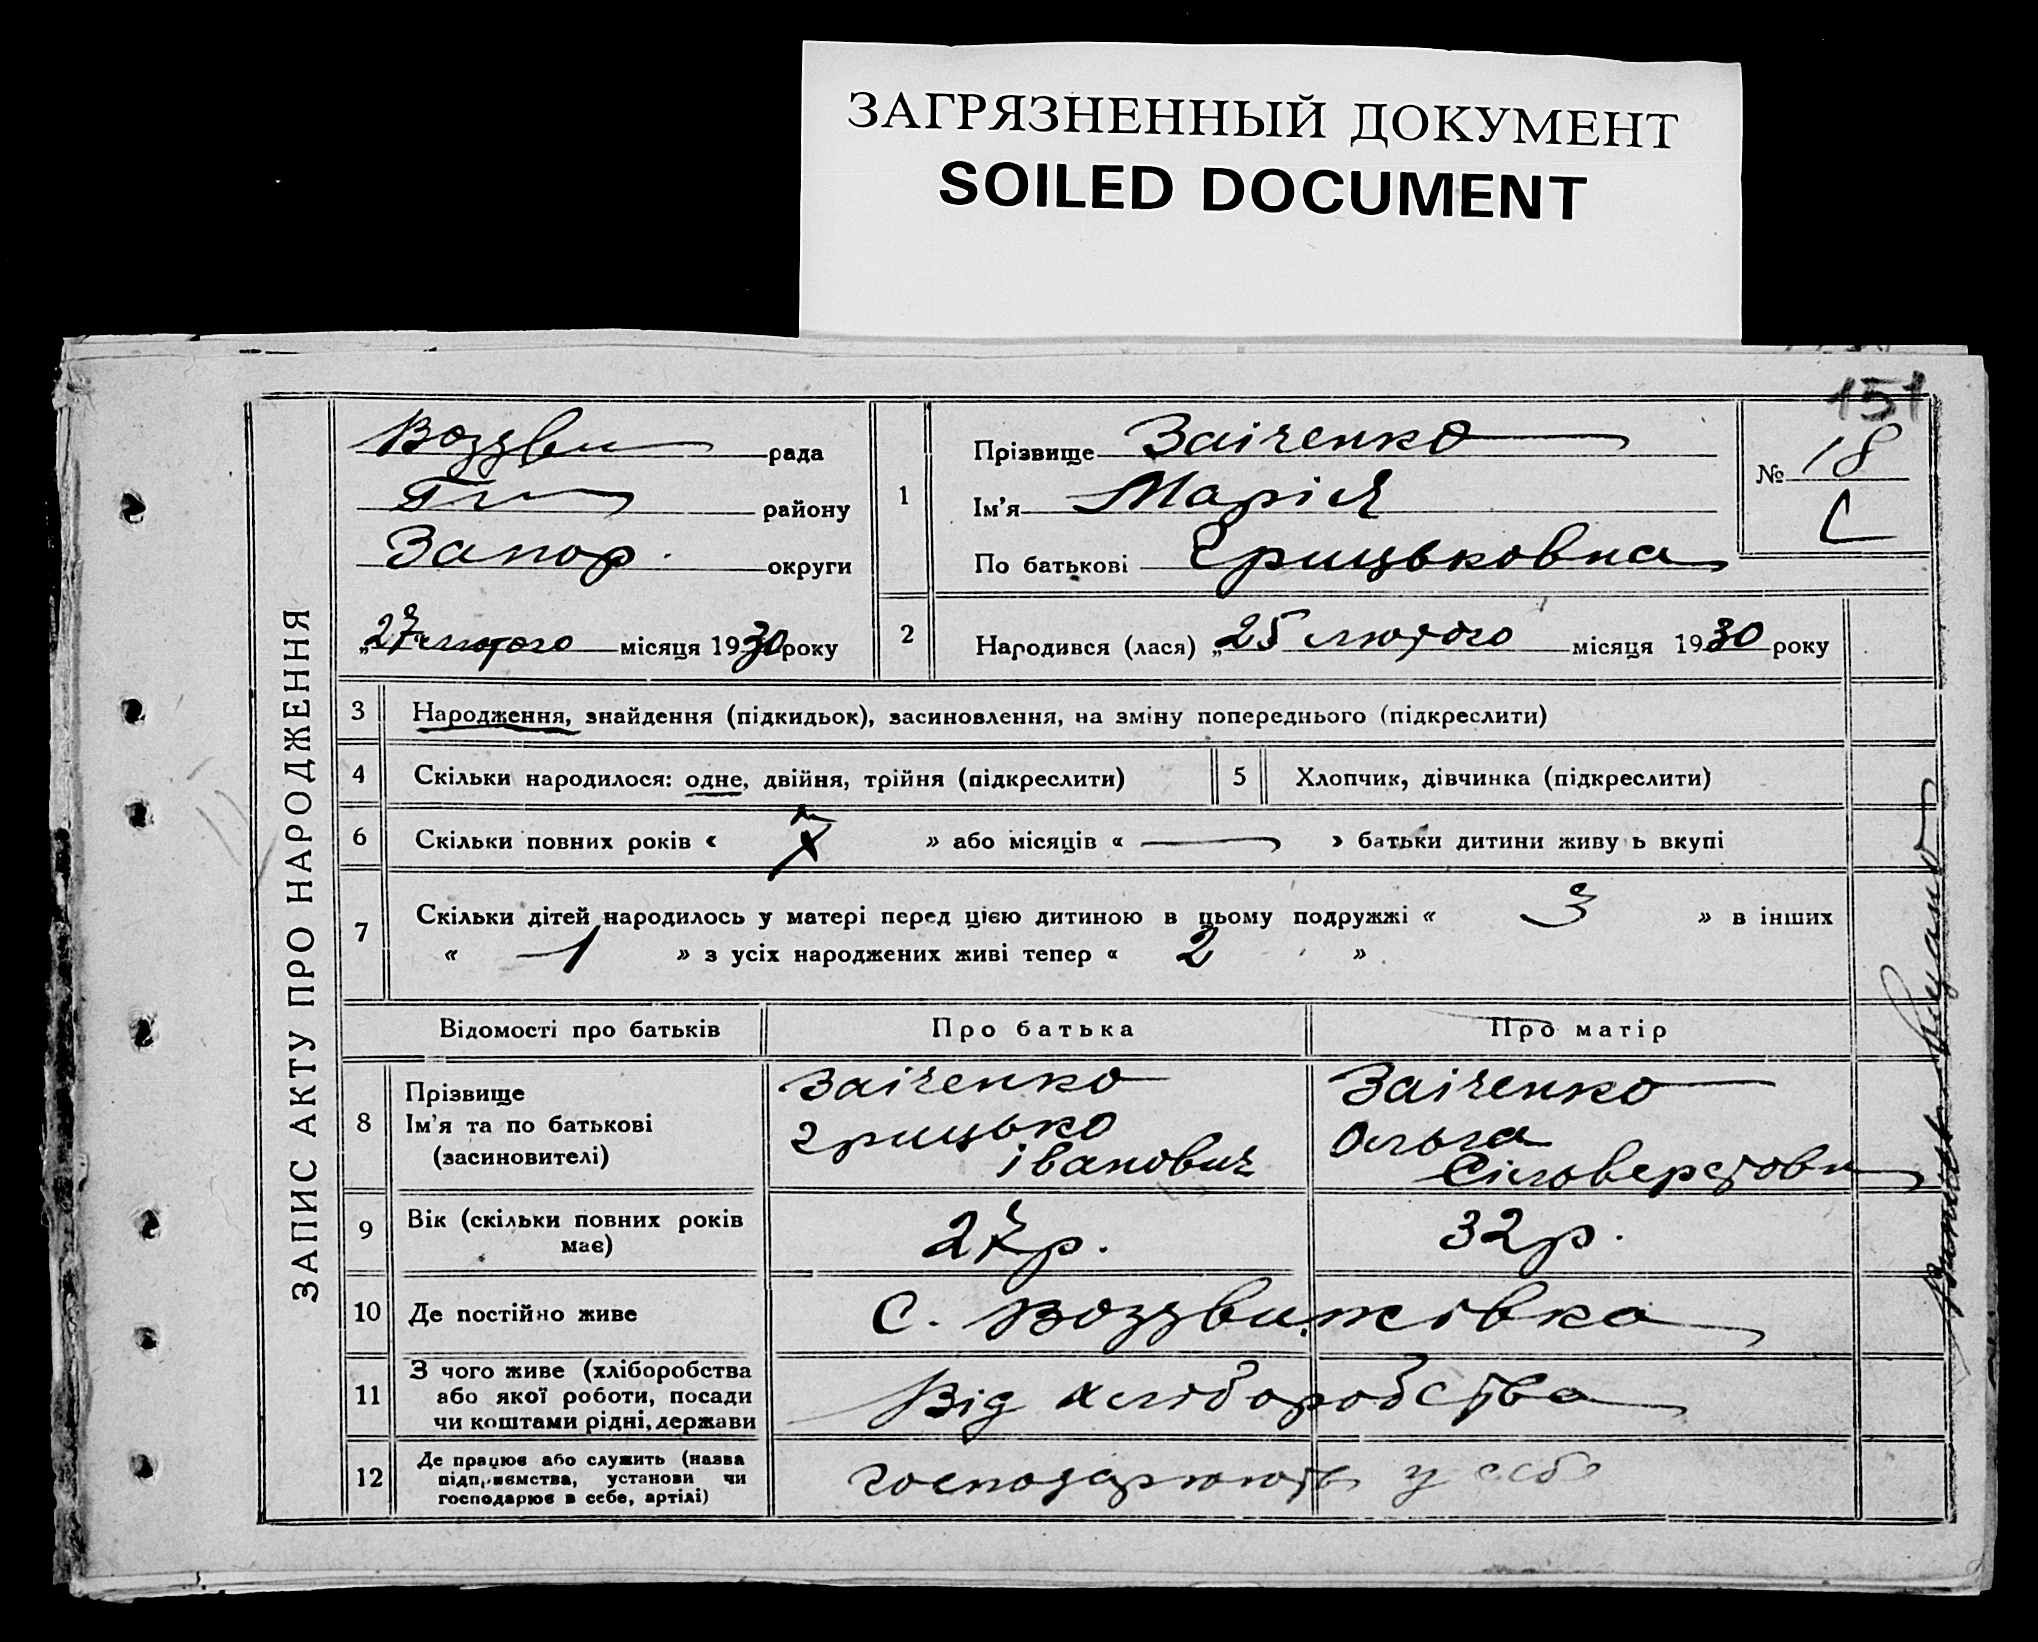 ЗАГРЯЗНЕННЫЙ ДОКУМЕНТ
SOILED DOCUMENT
151
ЗАПИС АКТУ ПРО НАРОДЖЕННЯ
Воздви рада
району
Запор. округи
„27 лютого місяця 1930 року
1
Прізвище Заіченко
Ім'я Марія
По батькові Грицьковна
№ 18
2
Народився (лася) „25 лютого місяця 1930 року
3 Народження, знайдення (підкидьок), засиновлення, на зміну попереднього (підкреслити)
4 Скільки народилося: одне, двійня, трійня (підкреслити) 5 Хлопчик, дівчинка (підкреслити)
6 Скільки повних років « 7 » або місяців « — » батьки дитини живу ь вкупі
7 Скільки дітей народилось у матері перед цією дитиною в цьому подружжі « 3 » в інших
« 1 » з усіх народжених живі тепер « 2 »
Відомості про батьків Про батька Про матір
8 Прізвище
Ім'я та по батькові
(засиновителі)
Заіченко
Грицько
Іванович
Заіченко
Ольга
Сільверстовн
9 Вік (скільки повних років
має)
27 р. 32 р.
10 Де постійно живе С. Воздвижівка
11 З чого живе (хліборобства
або якої роботи, посади
чи коштами рідні, держави
Від хліборобства
12 Де працює або служить (назва
підприємства, установи чи
господарює в себе, артілі)
господарюють у себе